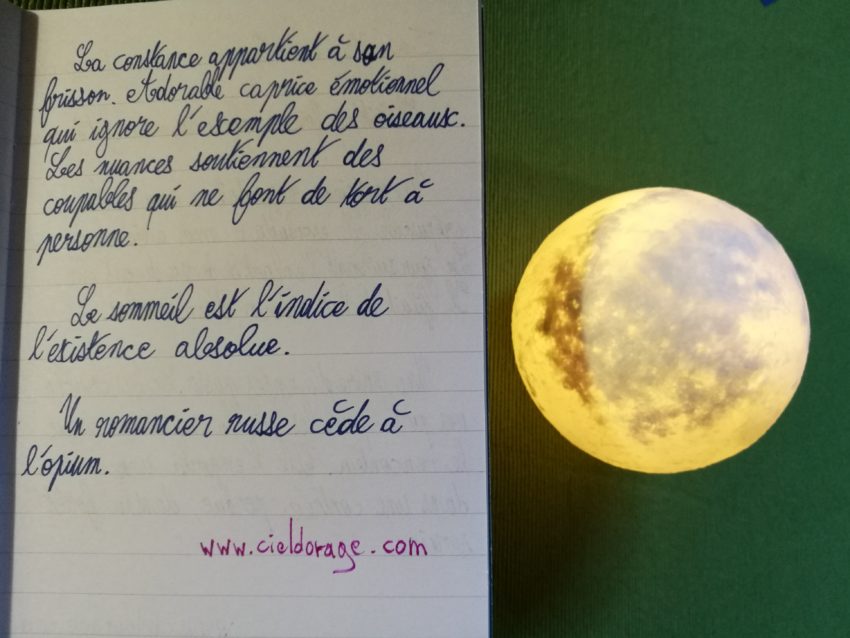 La constance appartient à son
frisson. Adorable caprice émotionnel
qui ignore l'exemple des oiseaux.
Les nuances soutiennent des
coupables qui ne font de tort à
personne.
Le sommeil est l'indice de
l'existence absolue.
Un romancier russe cède à
l'opium.
www.cieldorage.com